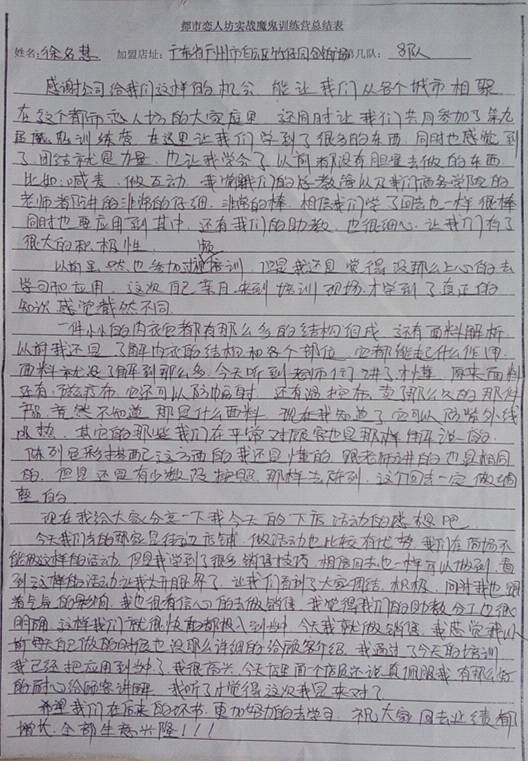 都市恋人坊实战魔鬼训练营总结表
姓名:徐名慧 加盟店址:广东省广州市白云区 几队: 8队
感谢公司给我们这样的机会 能让我们从各个城市相聚
在这个都市恋人坊的大家庭里 还同时让我们共同参加了第九
届魔鬼训练营 在这里让我们学到了很多的东西 同时也感觉到
了团结就是力量 也让我学会了以前都没有胆量去做的东西
比如:喊麦、做互动 我觉得我们的总教官以及我们商务学院的
老师都讲的非常的仔细 非常的棒 相信我们学了回去也一样很棒
同时也要应用到其中 还有我们的助教 也很细心 让我们有了
很大的积极性
以前虽然也参加过培训 但是我还是觉得没那么上心的去
学习和应用 这次自己亲自来到培训现场才学到了真正的
知识 感觉截然不同
一件小小的内衣它都有那么多的结构组成 还有面料解析
以前我还是了解内衣的结构和各个部位 它都能起什么作用
面料就没了解到那么多 今天听到老师们讲了才懂 原来面料
还有 磁疗布 它还可以防辐射 还有 卖那么久的那种
产品竟然不知道那是什么面料 现在我知道了它可以防紫外线
吸热 其它的那些我们在平常对顾客也是那样解说的
陈列色彩搭配这方面的我还是懂的 跟老师讲的也是相同
的 但是还是有少数没按照那样去陈列 这个回去一定做调
整的
现在我给大家分享一下我今天的下店活动的感想吧
今天我们去的那家是街边店铺 做活动也比较有优势 我们在商场不
能做这样的活动 但我学到了很多销售技巧 相信回去也一样可以做到 看
到这样的活动让我大开眼界了 让我们看到了大家团结 积极 同时我也跟
着气氛的影响 我也很有信心的去做销售 我觉得我们的助教分工也很
明确 这样我们就很快能都投入到当中 今天我就做销售 我感觉我以
前每天自己做的时候也没那么详细的给顾客介绍 我通过了今天的培训
我已经把应用到当中了 我很高兴 今天店里面个店员还说真佩服我有那么好
的耐心给顾客讲解 我听了才觉得这次我是来对了
希望我们在后来的 更加努力的去学习 祝大家回去业绩都
增长 全部生意兴隆!!!